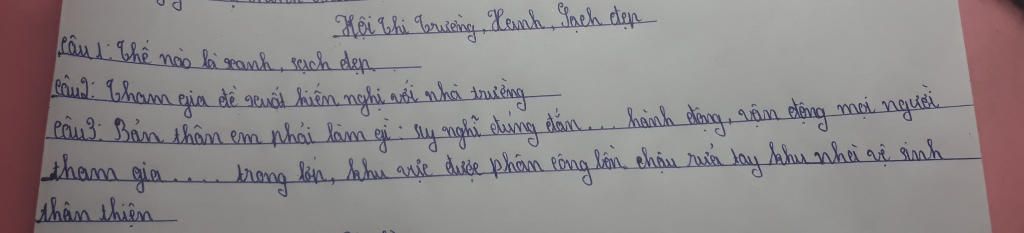 Hội thi Trường, Xanh, Sạch đẹp
Câu 1: Thế nào là xanh, sạch đẹp
Câu2: Tham gia đề xuất kiến nghị với nhà trường
Câu3: Bản thân em phải làm gì: suy nghĩ đúng đắn... hành động, vận động mọi người
tham gia .... trong lớn, khu vực được phân công lồn chậu rửa tay khu nhà vệ sinh
thân thiện